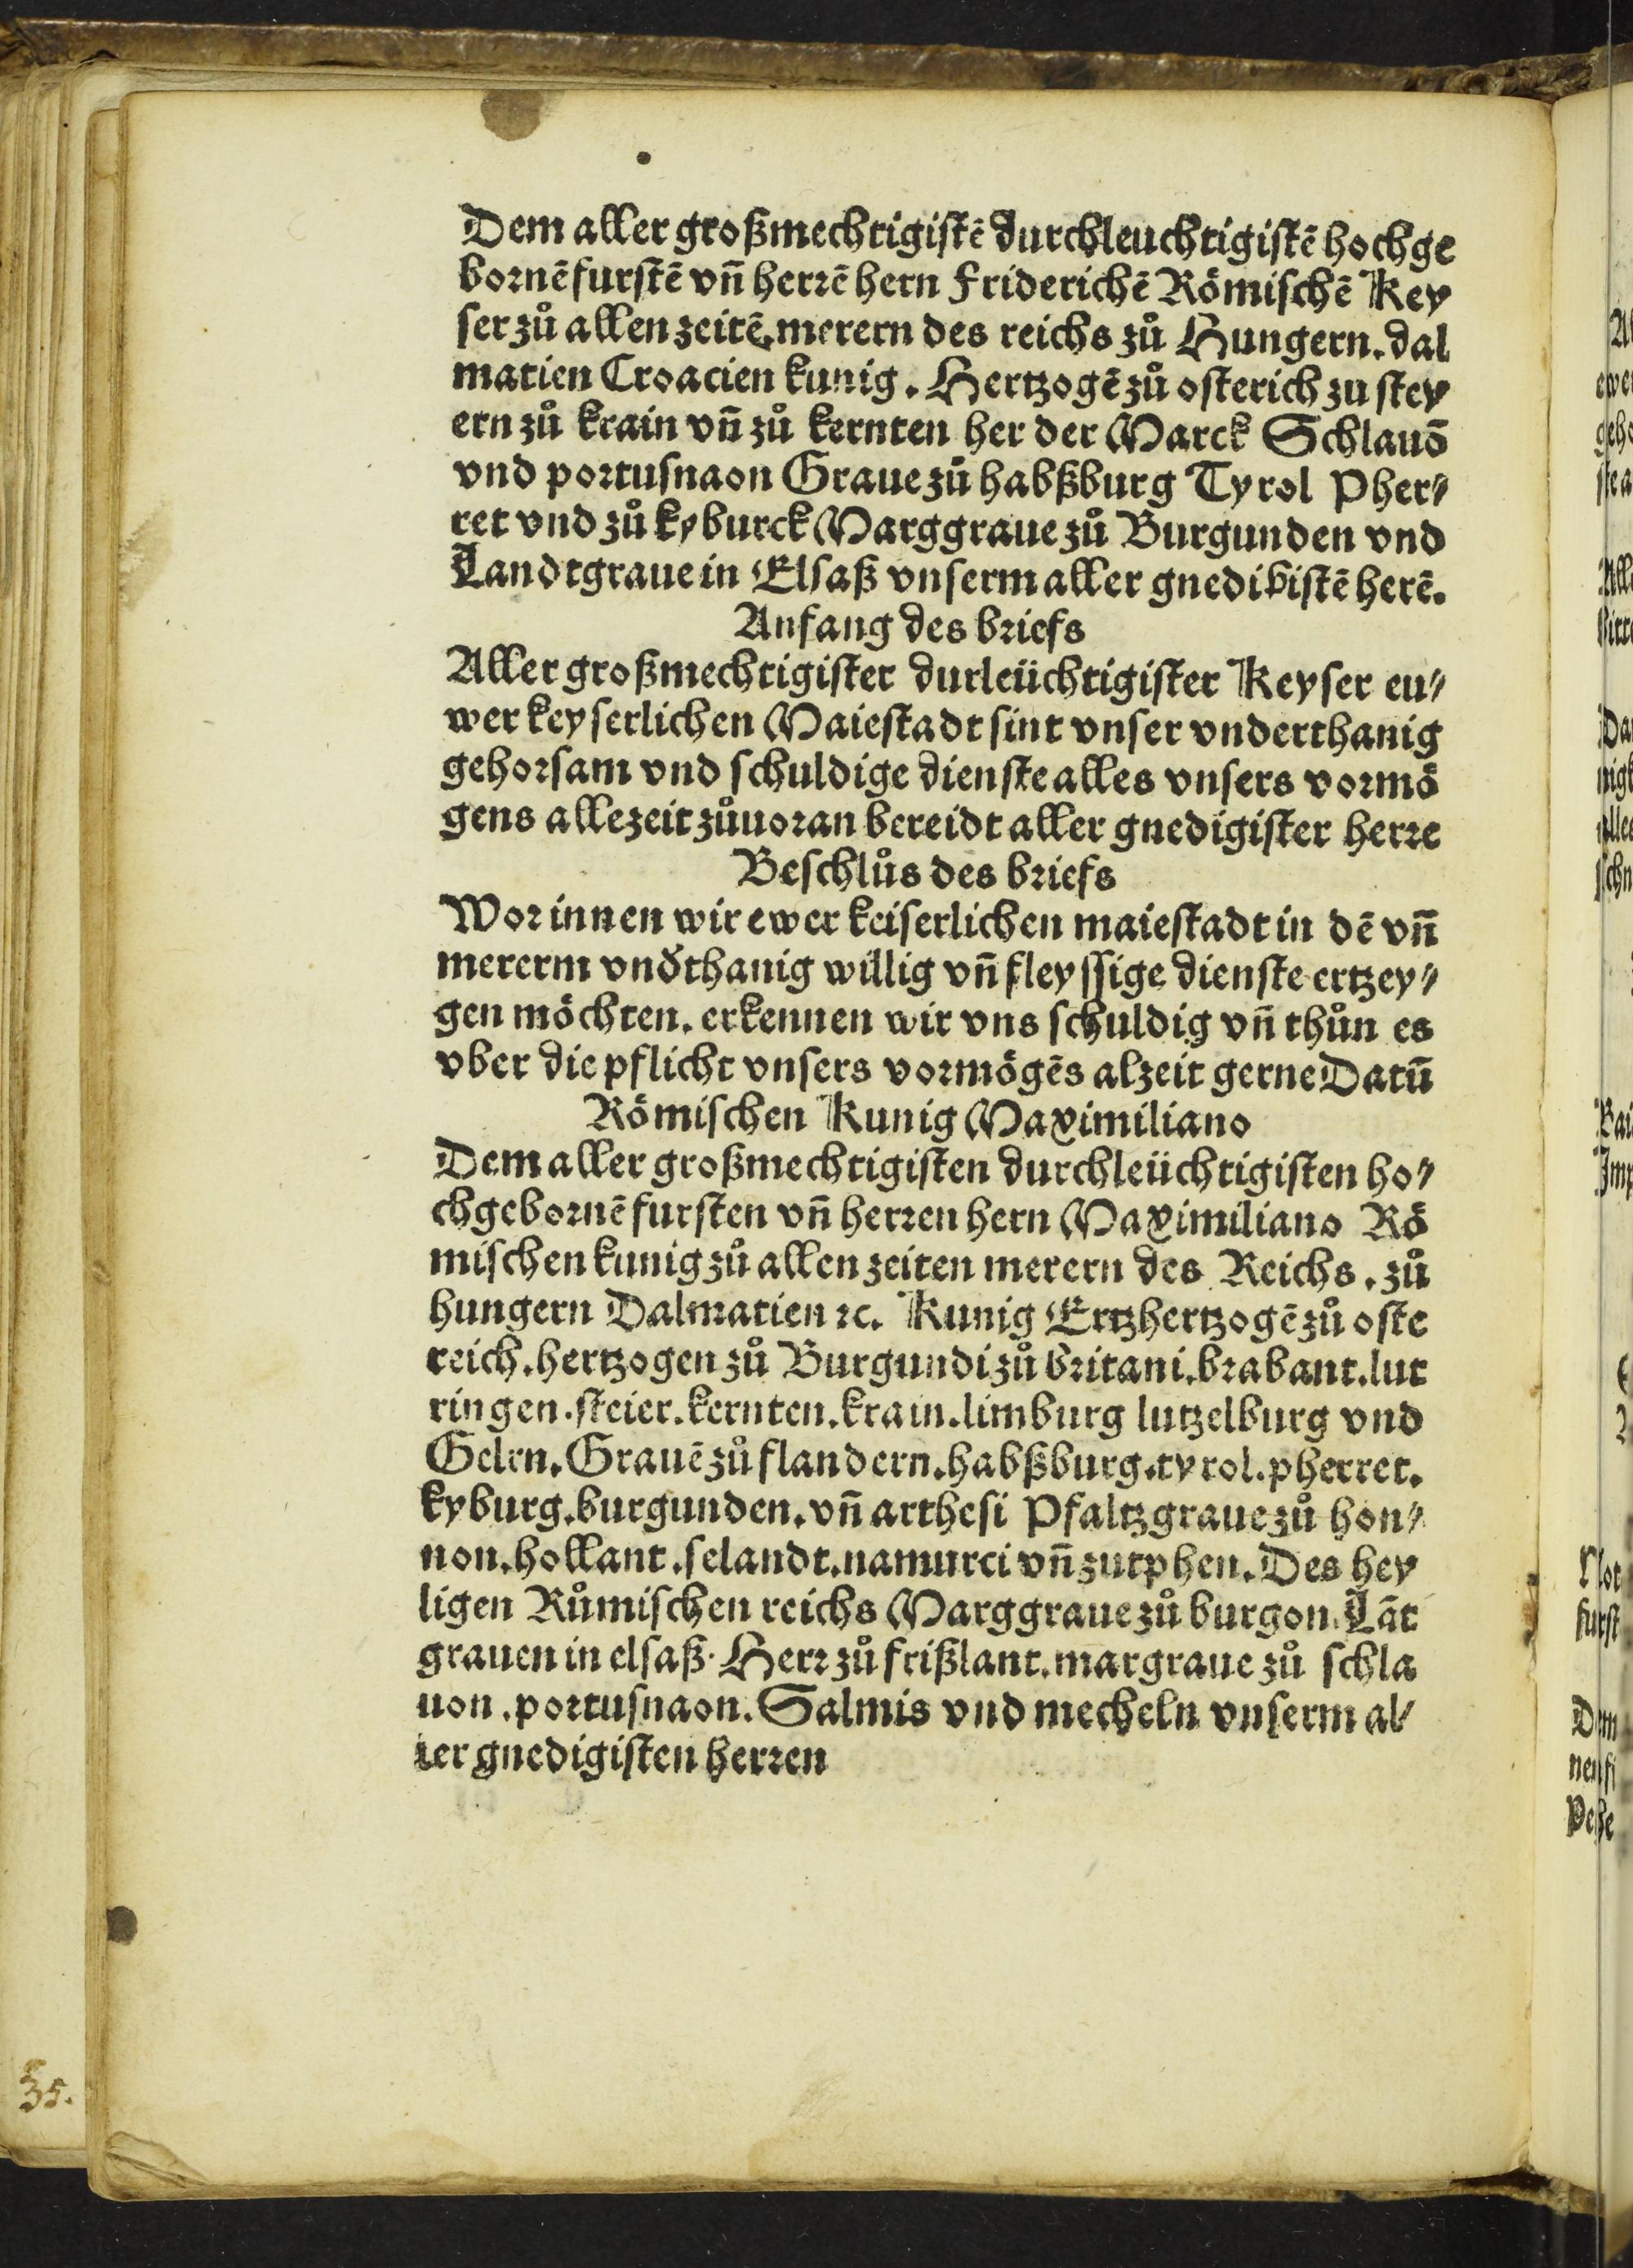 Dem aller großmechtigistē durchleuchtigistē hochge
bornē furstē vn̄ herrē hern Friderichē Römischē Key
ser zů allen zeitē. merern des reichs zů Hungern. dal
matien Croacien kunig. Hertzogē zů osterich zu stey
ern zů krain vn̄ zů kernten her der Marck Schlauō
vnd portusnaon Graue zů habßburg Tyrol Pher⸗
ret vnd zů kyburck Marggraue zů Burgunden vnd
Landtgraue in Elsaß vnserm aller gnedikistē herē.
Anfang des briefs
Aller großmechtigister durleüchtigister Keyser eu⸗
wer keyserlichen Maiestadt sint vnser vnderthanig
gehorsam vnd schuldige dienste alles vnsers vormö
gens allezeit zůuoran bereidt aller gnedigister herre
Beschlůs des briefs
Worinnen wir ewer keiserlichen maiestadt in dē vn̄
mererm vnd̛thanig willig vn̄ fleyssige dienste ertzey⸗
gen möchten. erkennen wir vns schuldig vn̄ thůn es
vber die pflicht vnsers vormögēs alzeit gerne Datū
Römischen Kunig Maximiliano
Dem aller großmechtigisten durchleüchtigisten ho⸗
chgebornē fursten vn̄ herren hern Maximiliano Rö
mischen kunig zů allen zeiten merern des Reichs. zů
hungern Dalmatien ꝛc. Kunig Ertzhertzogē zů oste
reich. hertzogen zů Burgundi zů britani. brabant. lut
ringen. steier. kernten. krain. limburg lutzelburg vnd
Gelrn. Grauē zů flandern. habßburg. tyrol. pherret.
kyburg. burgunden. vn̄ arthesi Pfaltzgraue zů hon⸗
non. hollant. selandt. namurci vn̄ zutphen. Des hey
ligen Růmischen reichs Marggraue zů burgon. Lāt
grauen in elsaß. Herr zů frißlant. margraue zů schla
uon. portusnaon. Salmis vnd mecheln vnserm al⸗
ler gnedigisten herren
35.